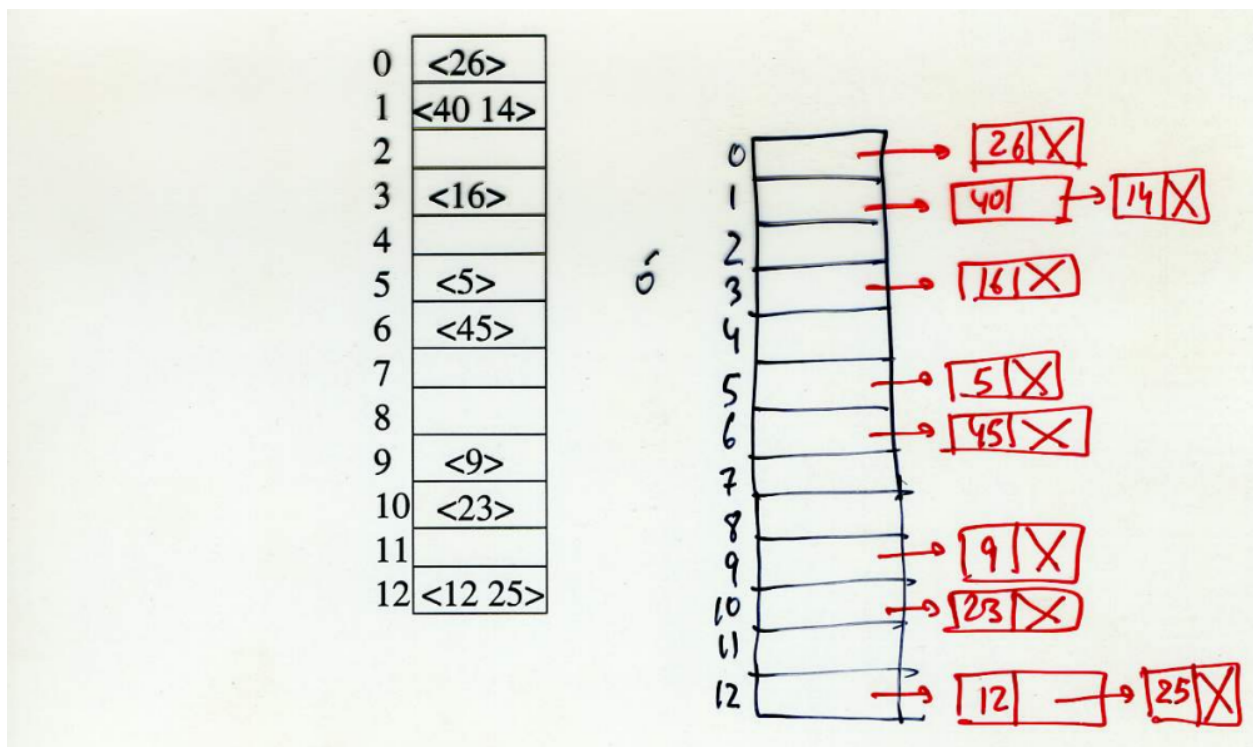 0 <26>
1 <40 14>
2
3 <16>
4
5 <5>
6 <45>
7
8
9 <9>
10 <23>
11
12 <12 25>
ó
0 26
1 40 14
2
3 16
4
5 5
6 45
7
8
9 9
10 23
11
12 12 25